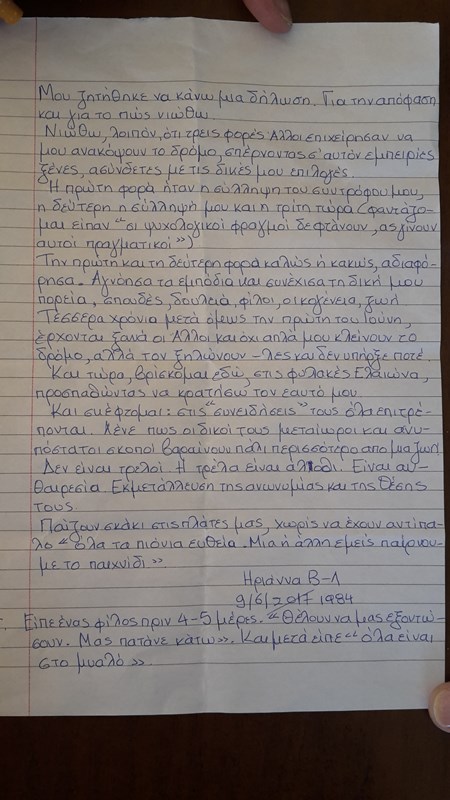 Μου ζητήθηκε να κάνω μια δήλωση. Για την απόφαση
και για το πώς νιώθω.
Νιώθω, λοιπόν, ότι τρεις φορές Άλλοι επιχείρησαν να
μου ανακόψουν το δρόμο, σπέρνοντας σ' αυτόν εμπειρίες
ξένες, ασύνδετες με τις δικές μου επιλογές.
Η πρώτη φορά ήταν η σύλληψη του συντρόφου μου,
η δεύτερη η σύλληψή μου και η τρίτη τώρα (φαντάζο-
μαι είπαν "οι ψυχολογικοί φραγμοί δε φτάνουν, ας γίνουν
αυτοί πραγματικοί")
Την πρώτη και τη δεύτερη φορά καλώς ή κακώς, αδιαφό-
ρησα. Αγνόησα τα εμπόδια και συνέχισα τη δική μου
πορεία, σπουδές, δουλειά, φίλοι, οικογένεια, ζωή
Τέσσερα χρόνια μετά όμως την πρώτη του Ιούνη,
έρχονται ξανά οι Άλλοι και όχι απλά μου κλείνουν το
δρόμο, αλλά τον ξηλώνουν - λες και δεν υπήρξε ποτέ.
Και τώρα, βρίσκομαι εδώ, στις φυλακές Ελαιώνα,
προσπαθώντας να κρατήσω τον εαυτό μου.
Και σκέφτομαι: στις "συνειδήσεις" τους όλα επιτρέ-
πονται. Λένε πως οι δικοί τους μεταίωροι και ανυ-
πόστατοι σκοποί βαραίνουν πάλι περισσότερο απο μια ζωή
Δεν είναι τρελοί. Η τρέλα είναι αλλού. Είναι αυ-
θαιρεσία. Εκμετάλλευση της ανωνυμίας και της θέσης
τους
Παίζουν σκάκι στις πλάτες μας, χωρίς να έχουν αντίπα-
λο «όλα τα πιόνια ευθεία. Μια ή άλλη εμείς παίρνου-
με το παιχνίδι»
Ηριάννα Β-Λ
9/6/2017 1984
Είπε ένας φίλος πριν 4-5 μέρες. «Θέλουν να μας εξοντώ-
σουν. Μας πατάνε κάτω». Και μετά είπε «όλα είναι
στο μυαλό».